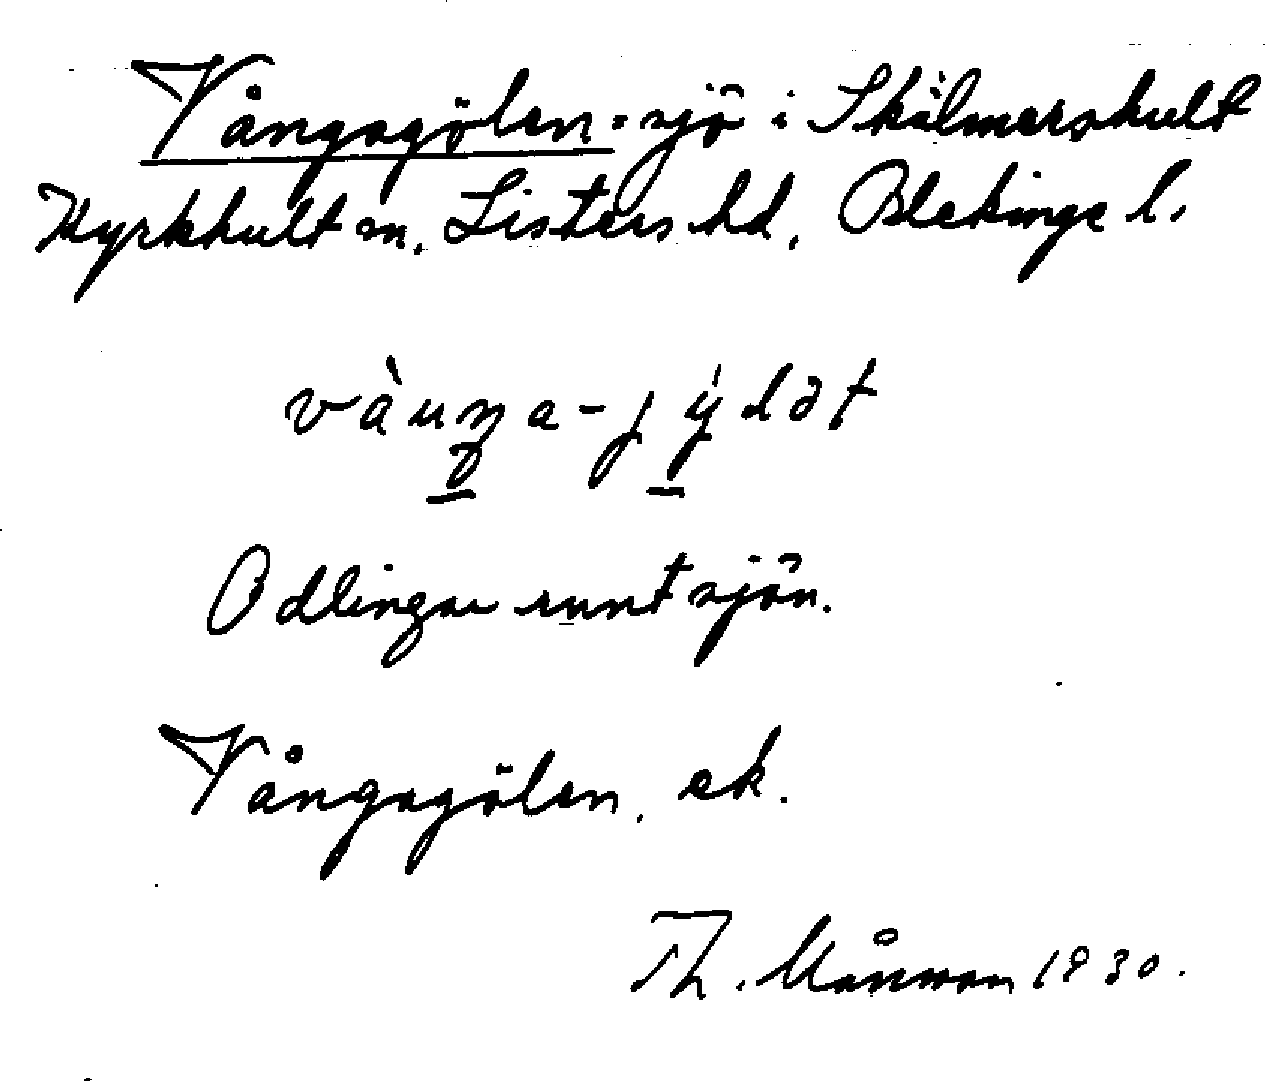 Vångagölen. sjö i Skälmershult
Kyrkhult sn. Listers hd, Blekinge l.
vàuŋa-jýlət
Odlingar runt sjön.
Vångagölen, ek.
Th. Månman 1930.